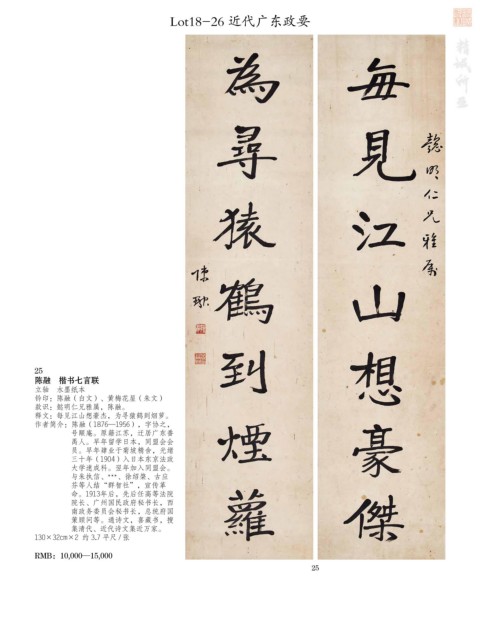 Lot18-26 近代广东政要
每見江山想豪傑
懿明仁兄雅属
為尋猿鶴到煙蘿
陳融
25
陈融 楷书七言联
立轴 水墨纸本
钤印：陈融（白文）、黄梅花屋（朱文）
款识：懿明仁兄雅属，陈融。
释文：每见江山想豪杰，为寻猿鹤到烟萝。
作者简介：陈融（1876—1956），字协之，
号颙庵。原籍江苏，迁居广东番
禺人。早年留学日本，同盟会会
员。早年肄业于菊坡精舍，光绪
三十年（1904）入日本东京法政
大学速成科。翌年加入同盟会。
与朱执信、***、徐绍棨、古应
芬等人结“群智社”，宣传革
命。1913年后，先后任高等法院
院长、广州国民政府秘书长，西
南政务委员会秘书长，总统府国
策顾问等。通诗文，喜藏书，搜
集清代、近代诗文集近万家。
130×32cm×2 约 3.7 平尺/张
RMB: 10,000—15,000
25